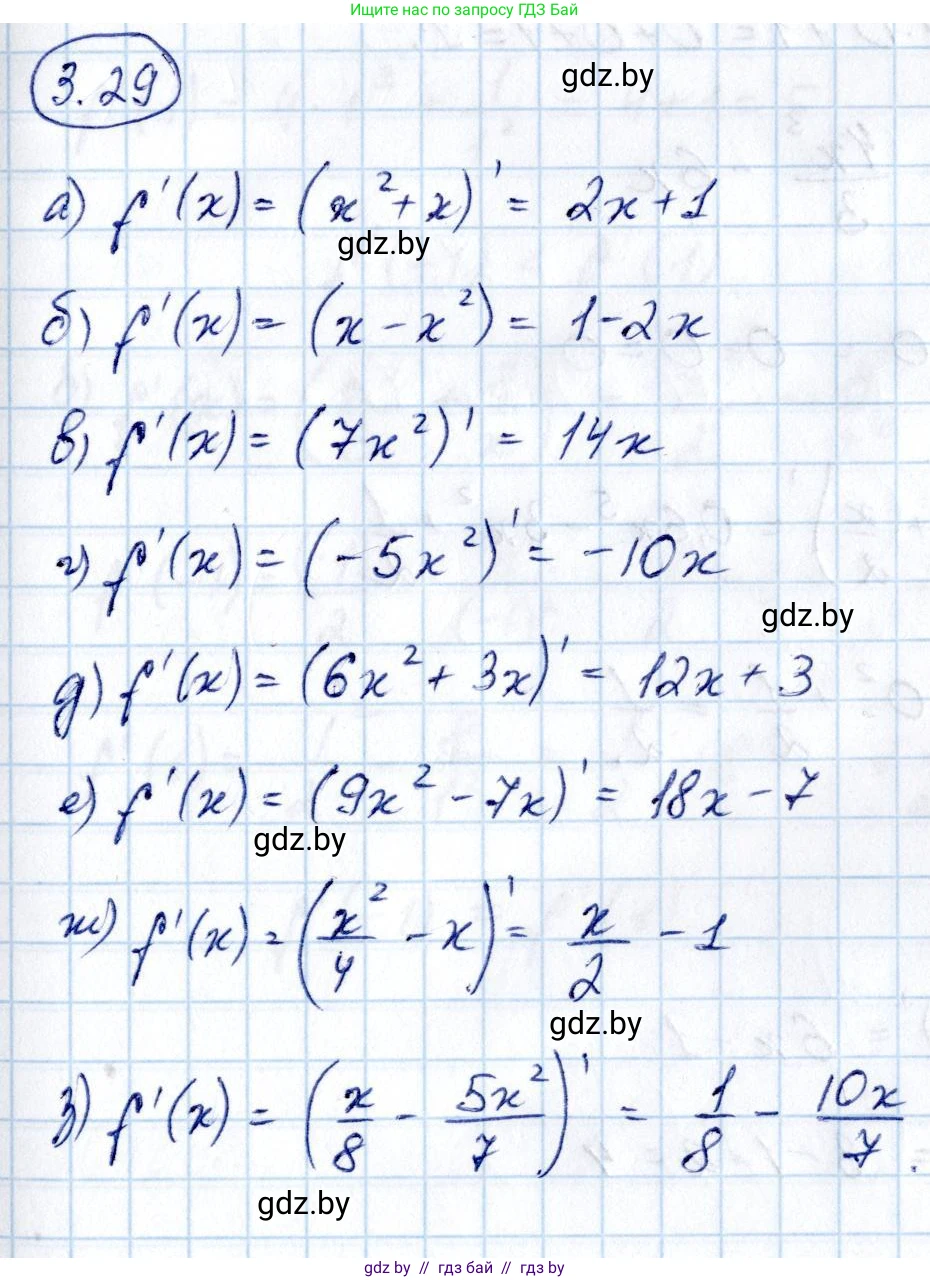 Ищите нас по запросу ГДЗ Бай
3.29
gdz.by
а) f'(x) = (x² + x)' = 2x + 1
gdz.by
б) f'(x) = (x - x²) = 1 - 2x
в) f'(x) = (7x²)' = 14x
г) f'(x) = (-5x²)' = -10x
gdz.by
д) f'(x) = (6x² + 3x)' = 12x + 3
е) f'(x) = (9x² - 7x)' = 18x - 7
gdz.by
ж) f'(x) = (x²/4 - x)' = x/2 - 1
gdz.by
з) f'(x) = (x/8 - 5x²/7)' = 1/8 - 10x/7.
gdz.by
gdz.by // гдз бай // гдз by